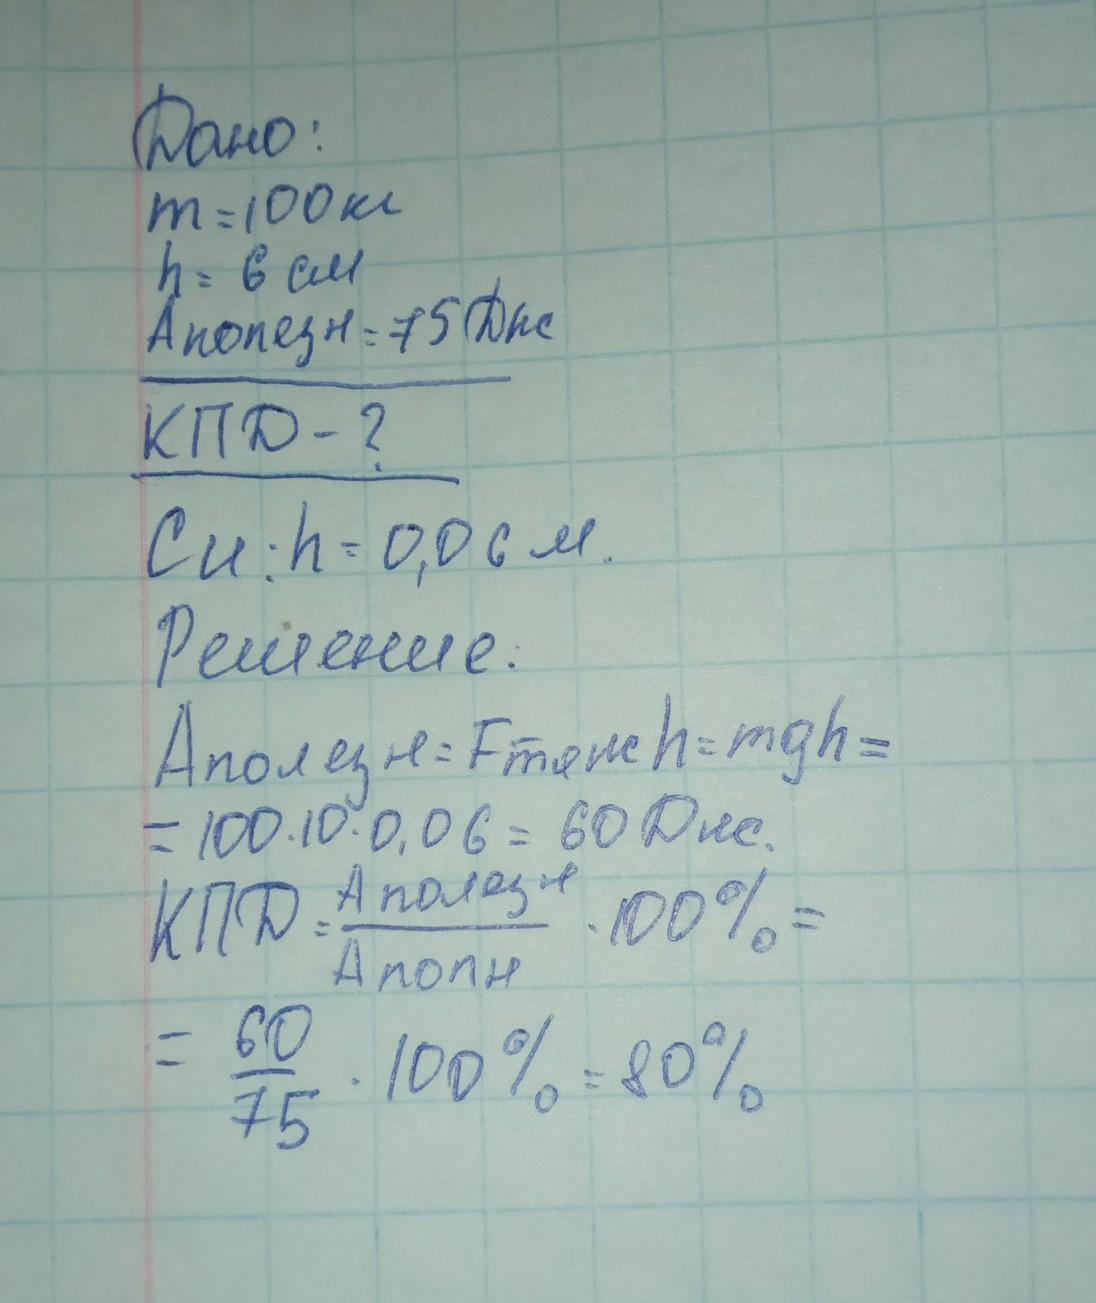 Дано:
m=100кг
h= 6 см
Аполезн=75Дж
КПД-?
Си: h= 0,06 м.
Решение:
Аполезн=Fтяжh=mgh=
=100·10·0,06= 60 Дж.
КПД= Аполезн / Аполн ·100%=
= 60/75 · 100%=80%